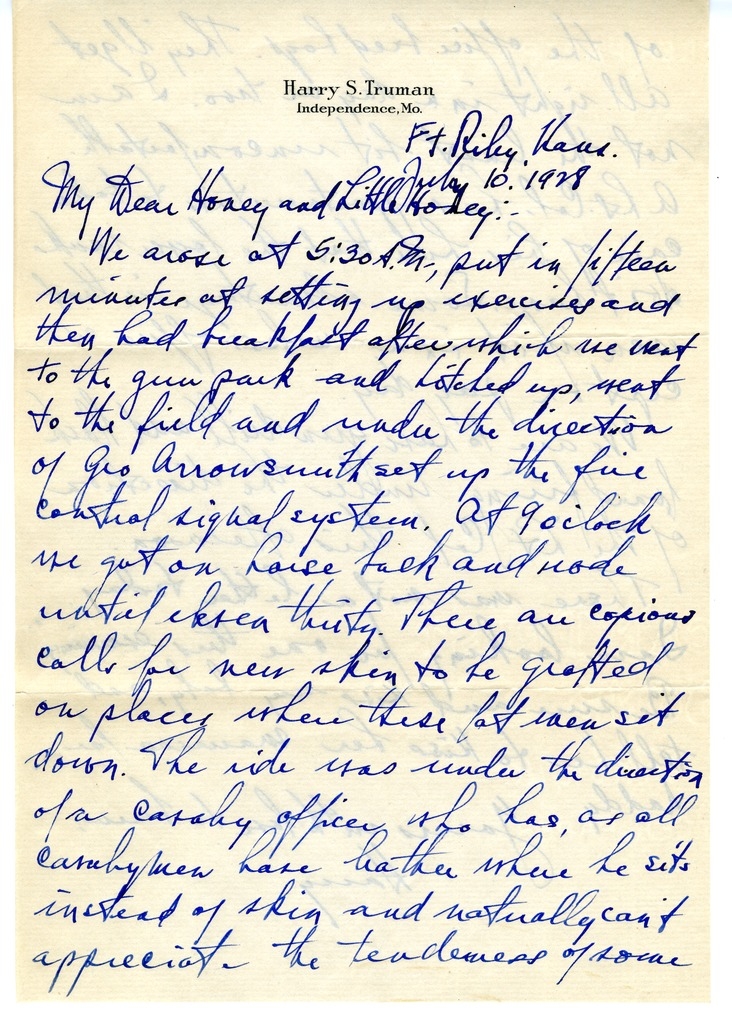 Harry S. Truman
Independence, Mo.
Ft. Riley, Kans.
July 10, 1928
My Dear Honey and Little Honey:-
We arose at 5:30 A.M., put in fifteen
minutes at setting up exercises and
then had breakfast after which we went
to the gun park and hitched up, went
to the field and under the direction
of Geo Arrowsmith set up the fire
control signal system. At 9 oclock
we got on horse back and rode
until eleven thirty. There are copious
calls for new skin to be grafted
on places where these fat men sit
down. The ride was under the direction
of a cavalry officer who has, as all
cavalrymen have leather where he sits
instead of skin and naturally can't
appreciate the tenderness of some